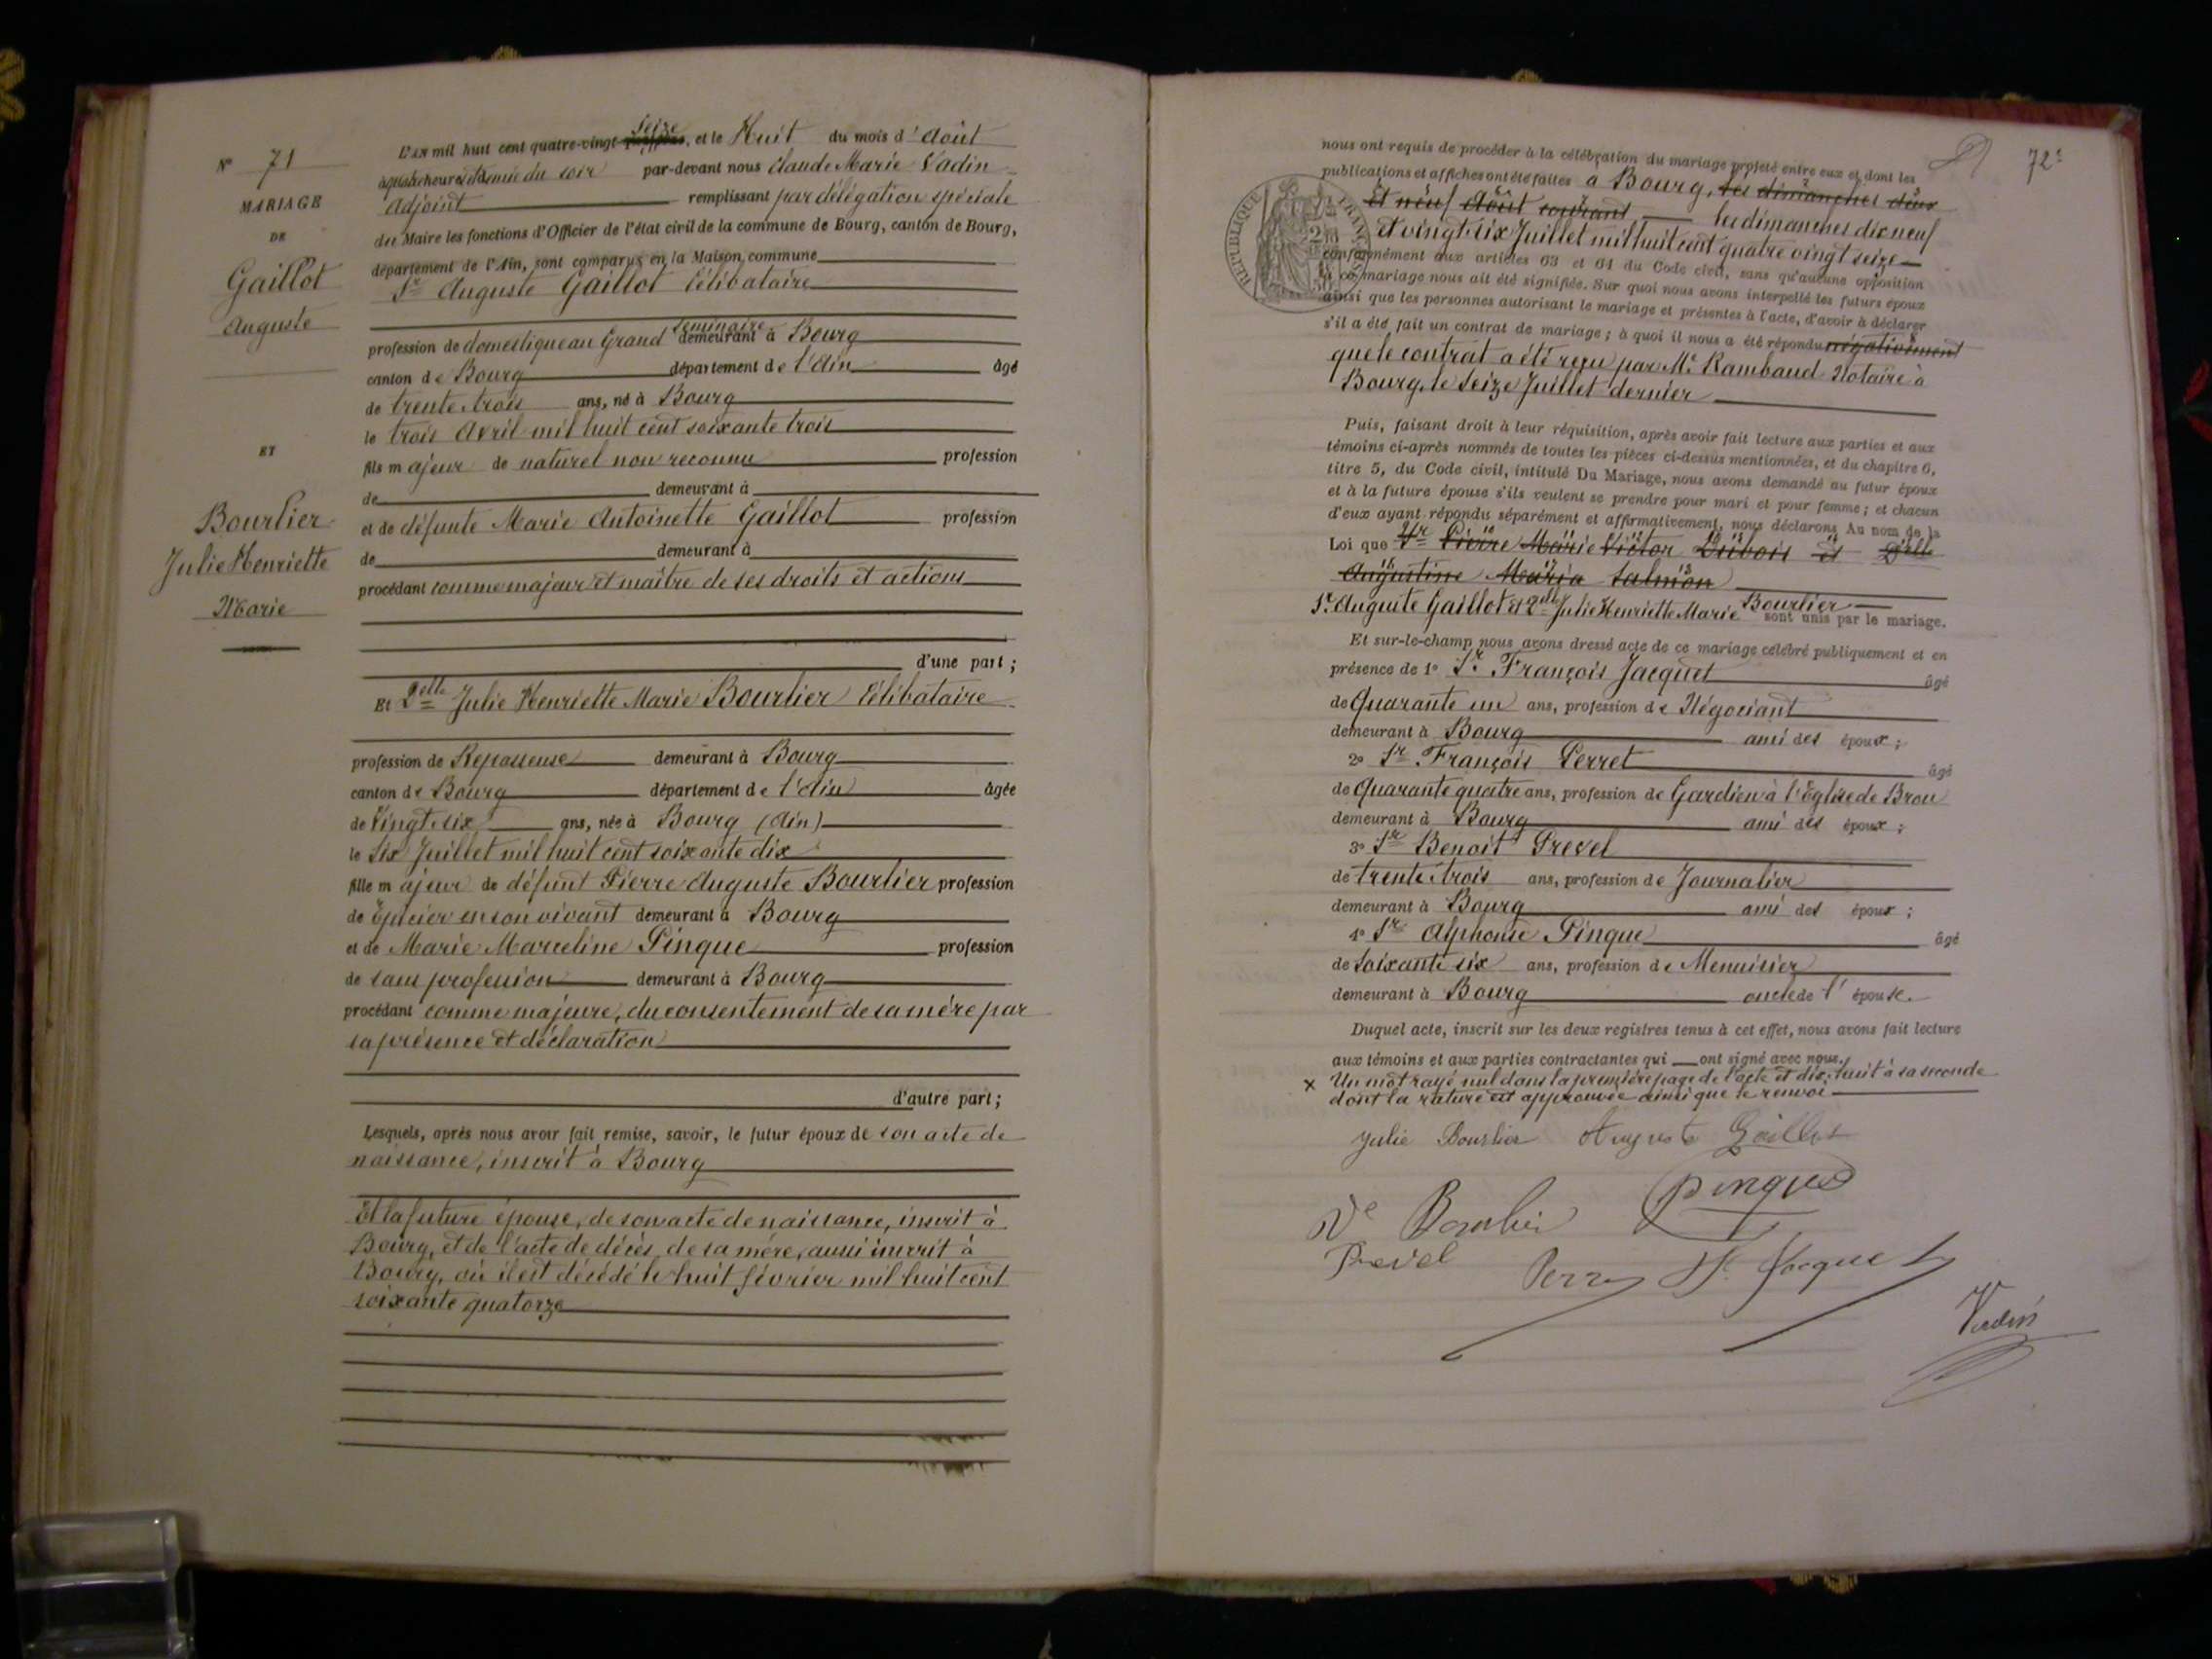 N° 71
MARIAGE
DE
Gaillot
Auguste
ET
Bourlier
Julie Henriette
Marie
L'AN mil huit cent quatre-vingt seize, et le Huit du mois d'Août
à quatre heures et demie du soir par-devant nous Claude Marie Vadin
Adjoint remplissant par délégation spéciale
du Maire les fonctions d'Officier de l'état civil de la commune de Bourg, canton de Bourg,
département de l'Ain, sont comparus en la Maison commune
Sr Auguste Gaillot Célibataire
profession de domestique au Grand Séminaire demeurant à Bourg
canton de Bourg département de l'Ain âgé
de trente trois ans, né à Bourg
le trois Avril mil huit cent soixante trois
fils majeur de naturel non reconnu profession
de demeurant à
et de défunte Marie Antoinette Gaillot profession
de demeurant à
procédant comme majeur et maître de ses droits et actions
d'une part;
Et Delle Julie Henriette Marie Bourlier Célibataire
profession de Repasseuse demeurant à Bourg
canton de Bourg département de l'Ain âgée
de Vingt six ans, née à Bourg (Ain)
le Six Juillet mil huit cent soixante dix
fille majeure de défunt Pierre Auguste Bourlier profession
de Épicier en son vivant demeurant à Bourg
et de Marie Marceline Pingue profession
de sans profession demeurant à Bourg
procédant comme majeure, du consentement de sa mère par
sa présence et déclaration
d'autre part;
Lesquels, après nous avoir fait remise, savoir, le futur époux de son acte de
naissance, inscrit à Bourg
Et la future épouse, de son acte de naissance, inscrit à
Bourg, et de l'acte de décès, de sa mère, aussi inscrit à
Bourg, où il est décédé le huit février mil huit cent
soixante quatorze
72e
nous ont requis de procéder à la célébration du mariage projeté entre eux et dont les
publications et affiches ont été faites à Bourg, les dimanches deux
et neuf Août courant les dimanches dix neuf
et vingt six Juillet mil huit cent quatre vingt seize
RÉPUBLIQUE FRANÇAISE
conformément aux articles 63 et 64 du Code civil, sans qu'aucune opposition
à ce mariage nous ait été signifiée. Sur quoi nous avons interpellé les futurs époux
ainsi que les personnes autorisant le mariage et présentes à l'acte, d'avoir à déclarer
s'il a été fait un contrat de mariage; à quoi il nous a été répondu négativement
que le contrat a été reçu par Me Rambaud Notaire à
Bourg, le Seize Juillet dernier
Puis, faisant droit à leur réquisition, après avoir fait lecture aux parties et aux
témoins ci-après nommés de toutes les pièces ci-dessus mentionnées, et du chapitre 6,
titre 5, du Code civil, intitulé Du Mariage, nous avons demandé au futur époux
et à la future épouse s'ils veulent se prendre pour mari et pour femme; et chacun
d'eux ayant répondu séparément et affirmativement, nous déclarons Au nom de la
Loi que Sr Pierre Marie Victor Dubois et Delle
Augustine Maria Salmon
Sr Auguste Gaillot et Delle Julie Henriette Marie Bourlier sont unis par le mariage.
Et sur-le-champ nous avons dressé acte de ce mariage célébré publiquement et en
présence de 1° Sr François Jacquet âgé
de Quarante un ans, profession de Négociant
demeurant à Bourg ami des époux;
2° Sr François Perret âgé
de Quarante quatre ans, profession de Gardien à l'Église de Brou
demeurant à Bourg ami des époux;
3° Sr Benoit Prevel
de trente trois ans, profession de Journalier
demeurant à Bourg ami des époux;
4° Sr Alphonse Pingue âgé
de Soixante six ans, profession de Menuisier
demeurant à Bourg oncle de l'épouse.
Duquel acte, inscrit sur les deux registres tenus à cet effet, nous avons fait lecture
aux témoins et aux parties contractantes qui ont signé avec nous.
x Un mot rayé nul dans la première page de l'acte et dix huit à sa seconde
dont la rature est approuvée ainsi que le renvoi
Julie Bourlier Auguste Gaillot
Ve Bourlier Pingue
Prevel Perret Fs Jacquet
Vadin